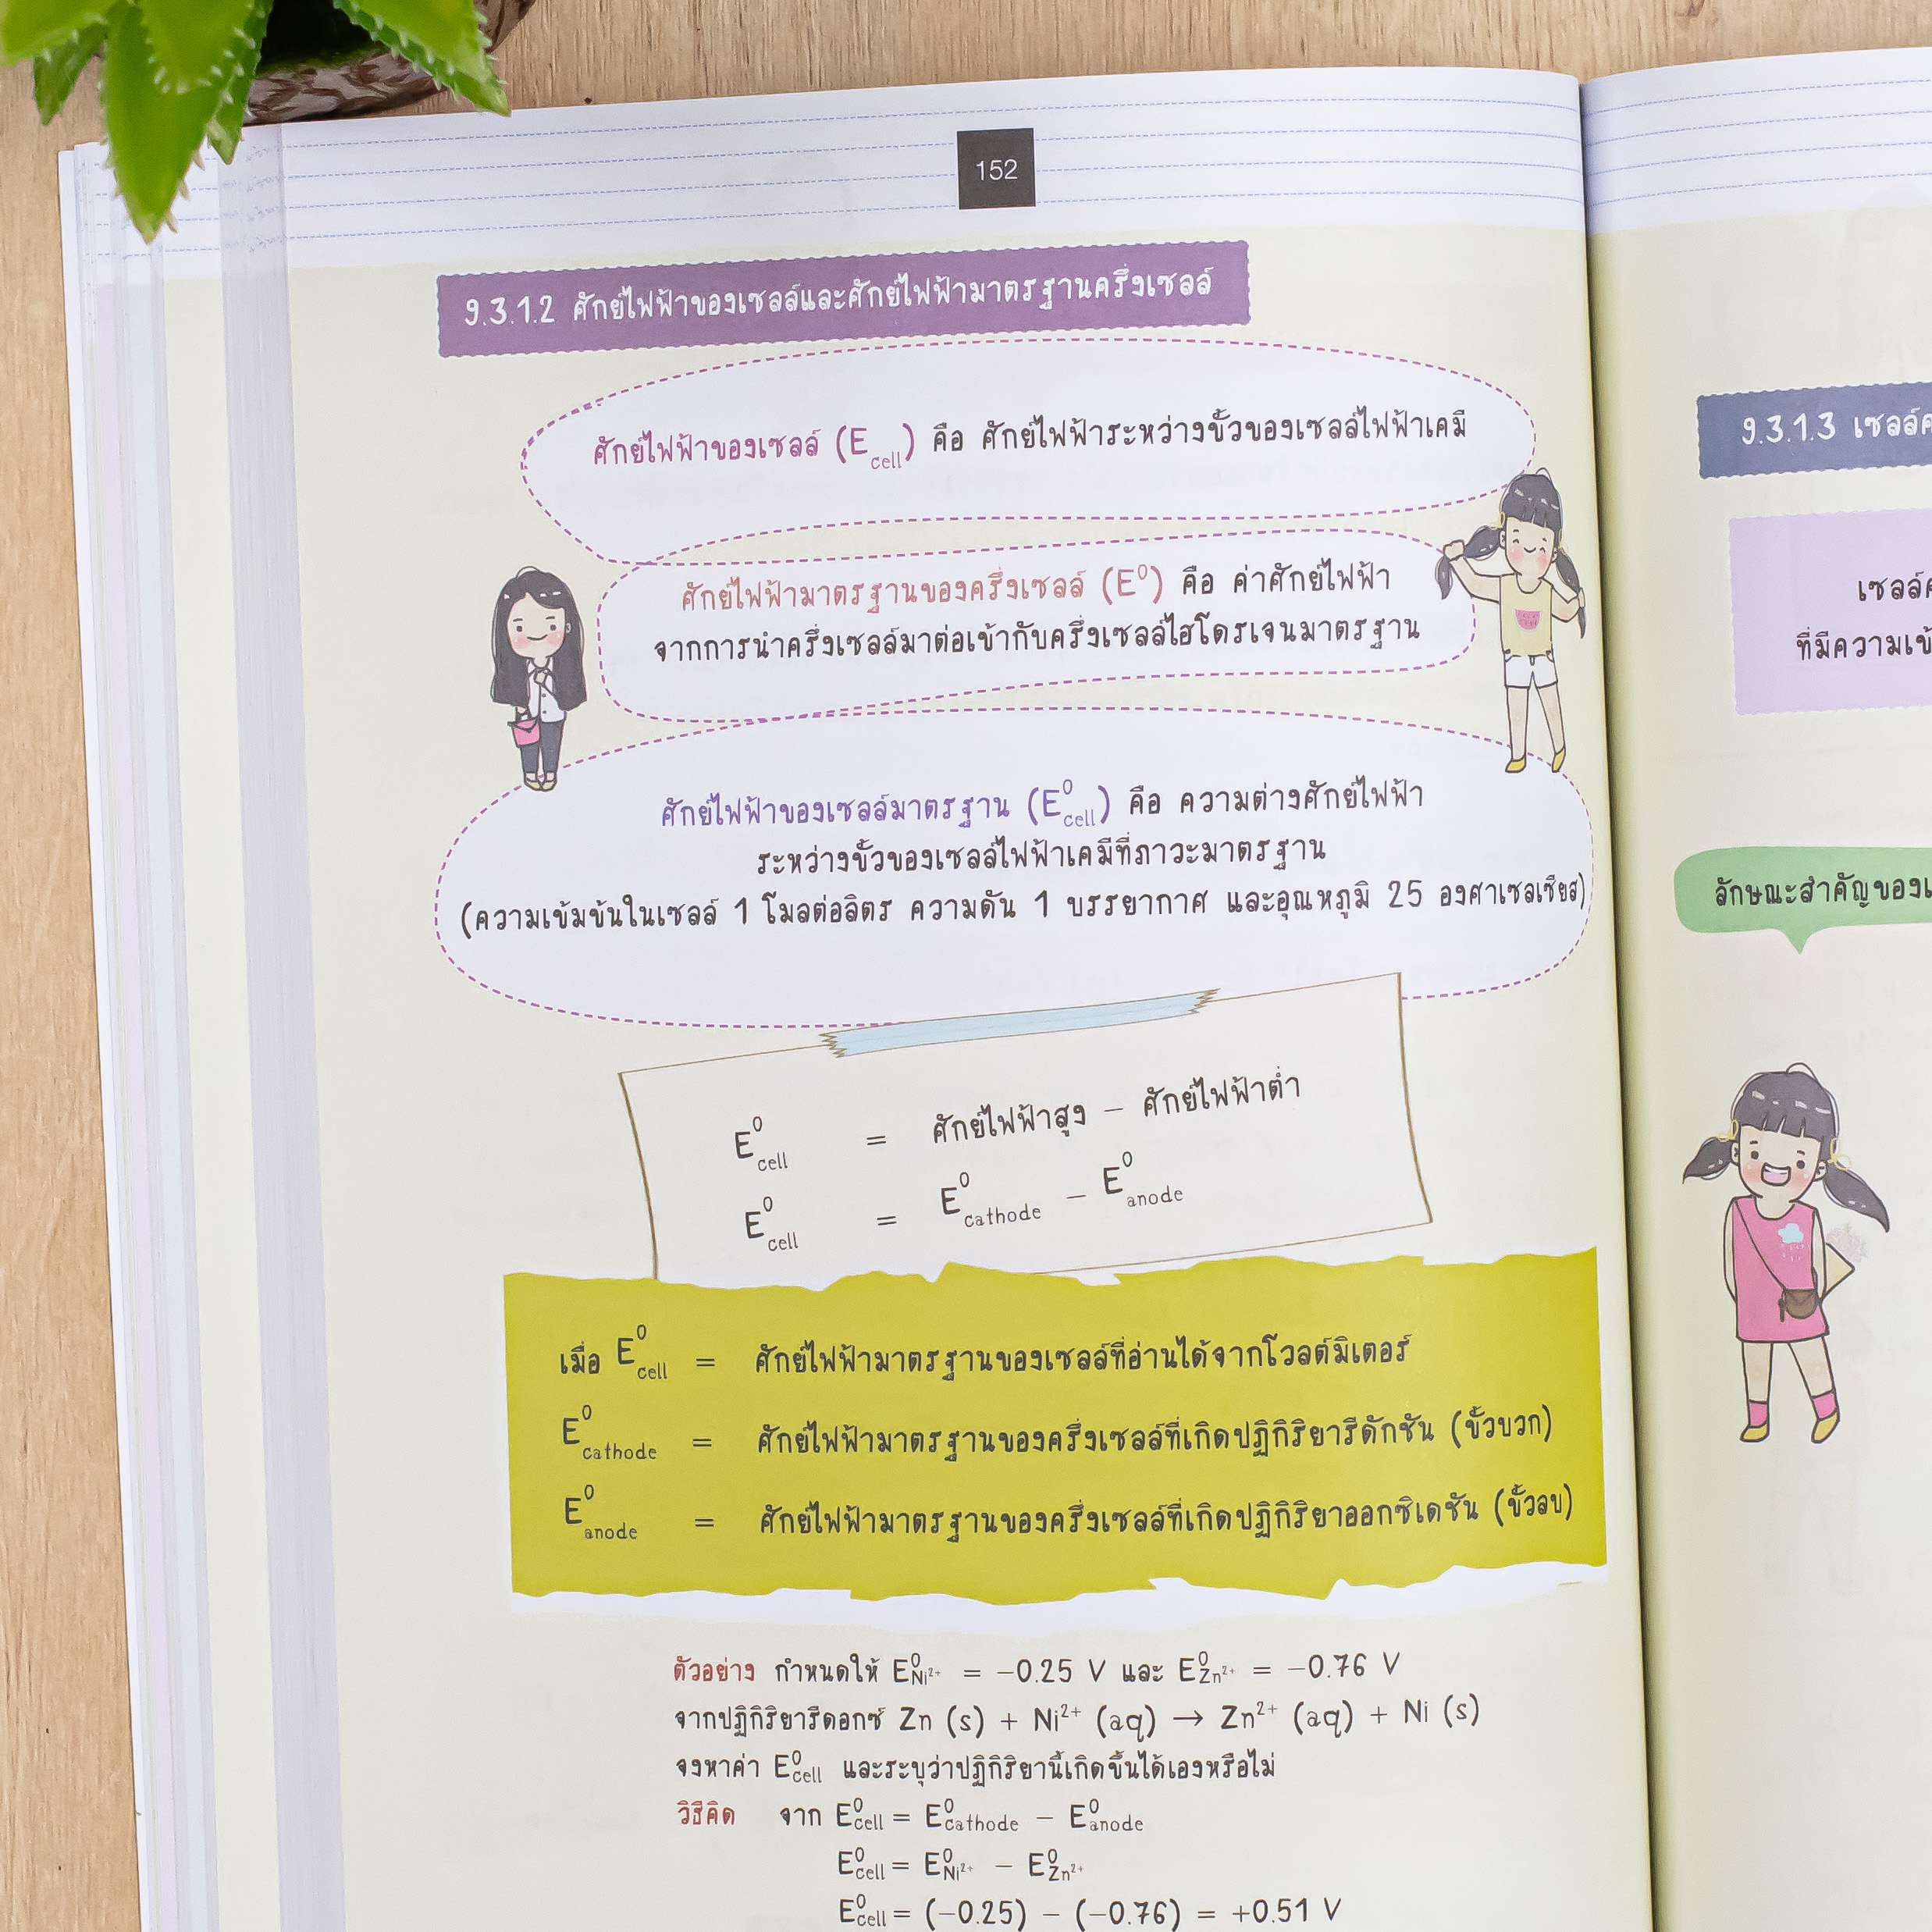 152
9.3.1.2 ศักย์ไฟฟ้าของเซลล์และศักย์ไฟฟ้ามาตรฐานครึ่งเซลล์
ศักย์ไฟฟ้าของเซลล์ (E cell) คือ ศักย์ไฟฟ้าระหว่างขั้วของเซลล์ไฟฟ้าเคมี
ศักย์ไฟฟ้ามาตรฐานของครึ่งเซลล์ (E⁰) คือ ค่าศักย์ไฟฟ้า
จากการนำครึ่งเซลล์มาต่อเข้ากับครึ่งเซลล์ไฮโดรเจนมาตรฐาน
ศักย์ไฟฟ้าของเซลล์มาตรฐาน (E⁰cell) คือ ความต่างศักย์ไฟฟ้า
ระหว่างขั้วของเซลล์ไฟฟ้าเคมีที่ภาวะมาตรฐาน
(ความเข้มข้นในเซลล์ 1 โมลต่อลิตร ความดัน 1 บรรยากาศ และอุณหภูมิ 25 องศาเซลเซียส)
E⁰cell = ศักย์ไฟฟ้าสูง – ศักย์ไฟฟ้าต่ำ
E⁰cell = E⁰cathode – E⁰anode
เมื่อ E⁰cell = ศักย์ไฟฟ้ามาตรฐานของเซลล์ที่อ่านได้จากโวลต์มิเตอร์
E⁰cathode = ศักย์ไฟฟ้ามาตรฐานของครึ่งเซลล์ที่เกิดปฏิกิริยารีดักชัน (ขั้วบวก)
E⁰anode = ศักย์ไฟฟ้ามาตรฐานของครึ่งเซลล์ที่เกิดปฏิกิริยาออกซิเดชัน (ขั้วลบ)
ตัวอย่าง กำหนดให้ E⁰Ni²⁺ = –0.25 V และ E⁰Zn²⁺ = –0.76 V
จากปฏิกิริยารีดอกซ์ Zn (s) + Ni²⁺ (aq) → Zn²⁺ (aq) + Ni (s)
จงหาค่า E⁰cell และระบุว่าปฏิกิริยานี้เกิดขึ้นได้เองหรือไม่
วิธีคิด จาก E⁰cell = E⁰cathode – E⁰anode
E⁰cell = E⁰Ni²⁺ – E⁰Zn²⁺
E⁰cell = (–0.25) – (–0.76) = +0.51 V
9.3.1.3
เซลล์
ที่มีความเข้
ลักษณะสำคัญของ